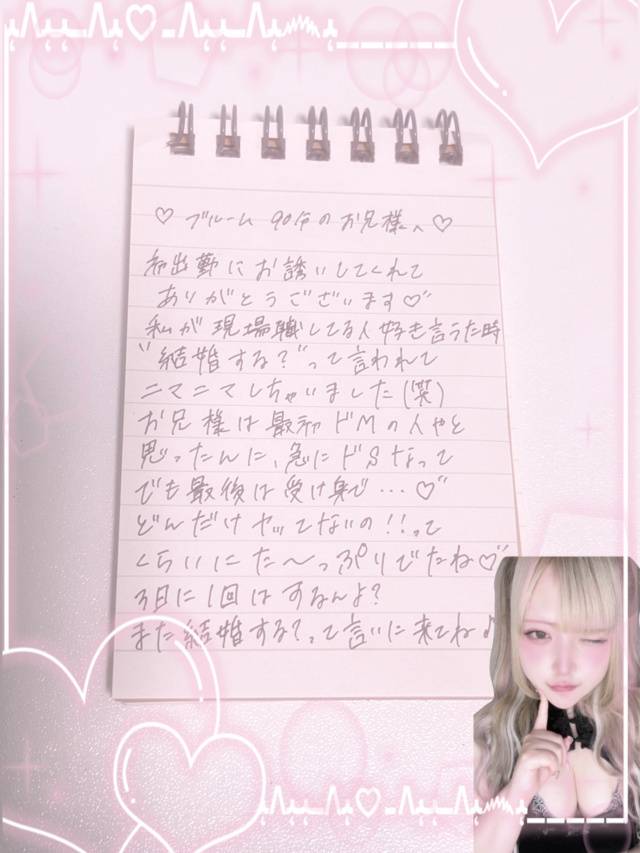 ♡ ブルーム 90分のお兄様へ ♡
初出勤にお誘いしてくれて
ありがとうございます♡
私が現場職してる人好き言うた時
"結婚する?"って言われて
ニマニマしちゃいました(笑)
お兄様は最初ドMの人やと
思ったんに、急にドSなって
でも最後は受け身で…♡
どんだけヤッてないの!!って
くらいにた〜っぷりでたね♡
3日に1回はするんよ?
また結婚する?って言いに来てね♪